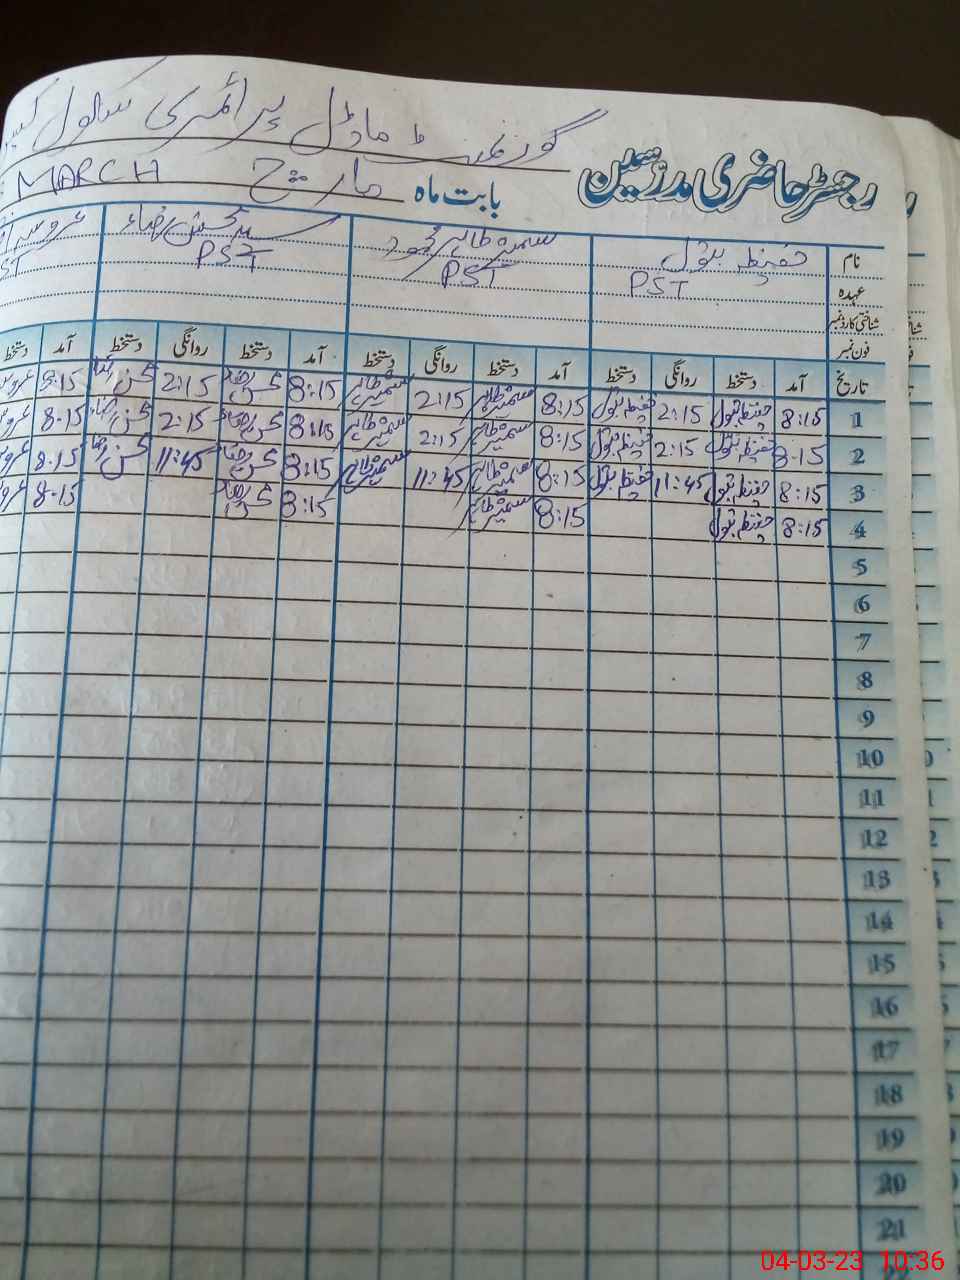 گورنمنٹ ماڈل پرائمری سکول
رجسٹر حاضری مدرسین بابت ماہ مارچ MARCH
نام حفیظہ بتول سمیرہ طاہر محمود سید محسن رضا
عہدہ PST PST PST
شناختی کارڈ نمبر
فون نمبر
تاریخ آمد دستخط روانگی دستخط آمد دستخط روانگی دستخط آمد دستخط روانگی دستخط آمد دستخط
1 8:15 حفیظہ بتول 2:15 حفیظہ بتول 8:15 سمیرہ طاہر 2:15 سمیرہ طاہر 8:15 محسن رضا 2:15 محسن رضا 8:15
2 8-15 حفیظہ بتول 2:15 حفیظہ بتول 8:15 سمیرہ طاہر 2:15 سمیرہ طاہر 8:15 محسن رضا 2:15 محسن رضا 8-15
3 8:15 حفیظہ بتول 11:45 حفیظہ بتول 8:15 سمیرہ طاہر 11:45 سمیرہ طاہر 8:15 محسن رضا 11:45 محسن رضا 8-15
4 8:15 حفیظہ بتول 8:15 سمیرہ طاہر 8:15 محسن رضا 8-15
5
6
7
8
9
10
11
12
13
14
15
16
17
18
19
20
21
04-03-23 10:36